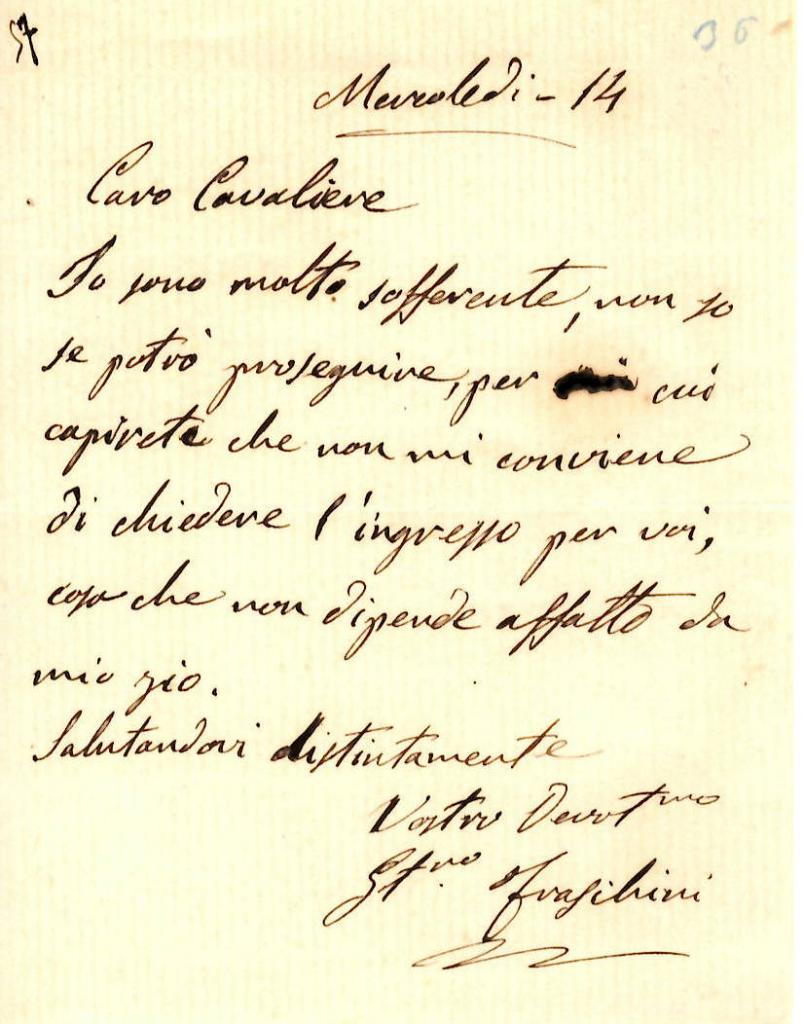 57
36
Mercoledì - 14
Caro Cavaliere
Io sono molto sofferente, non so
se potrò proseguire, per cui
capirete che non mi conviene
di chiedere l'ingresso per voi,
cosa che non dipende affatto da
mio zio.
Salutandovi distintamente
Vostro Devotmo
Gtno Fraschini